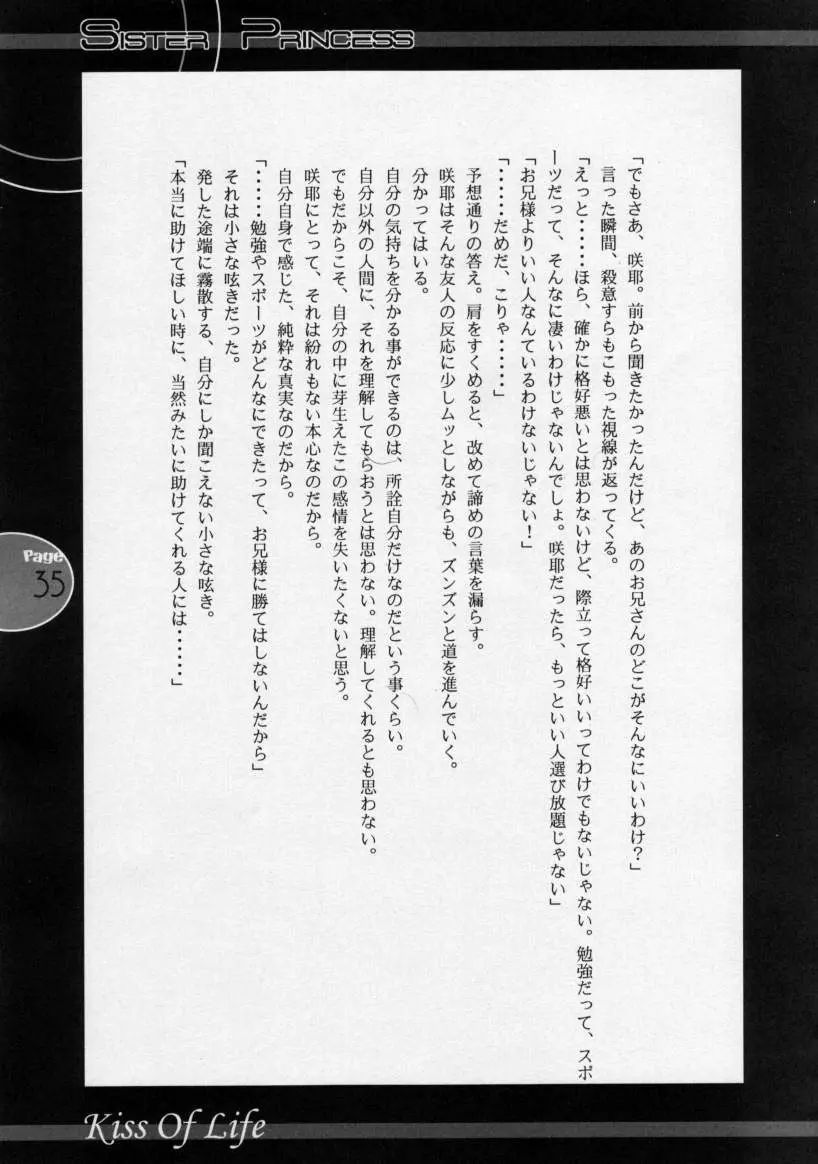 SISTER PRINCESS
「でもさあ、咲耶。前から聞きたかったんだけど、あのお兄さんのどこがそんなにいいわけ？」
言った瞬間、殺意すらもこもった視線が返ってくる。
「えっと・・・・・ほら、確かに格好悪いとは思わないけど、際立って格好いいってわけでもないじゃない。勉強だって、スポ
ーツだって、そんなに凄いわけじゃないんでしょ。咲耶だったら、もっといい人選び放題じゃない」
「お兄様よりいい人なんているわけないじゃない！」
「・・・・・だめだ、こりゃ・・・・・」
予想通りの答え。肩をすくめると、改めて諦めの言葉を漏らす。
咲耶はそんな友人の反応に少しムッとしながらも、ズンズンと道を進んでいく。
分かってはいる。
自分の気持ちを分かる事ができるのは、所詮自分だけなのだという事くらい。
自分以外の人間に、それを理解してもらおうとは思わない。理解してくれるとも思わない。
でもだからこそ、自分の中に芽生えたこの感情を失いたくないと思う。
咲耶にとって、それは紛れもない本心なのだから。
自分自身で感じた、純粋な真実なのだから。
「・・・・・勉強やスポーツがどんなにできたって、お兄様に勝てはしないんだから」
それは小さな呟きだった。
発した途端に霧散する、自分にしか聞こえない小さな呟き。
「本当に助けてほしい時に、当然みたいに助けてくれる人には・・・・・・」
Page
35
Kiss Of Life